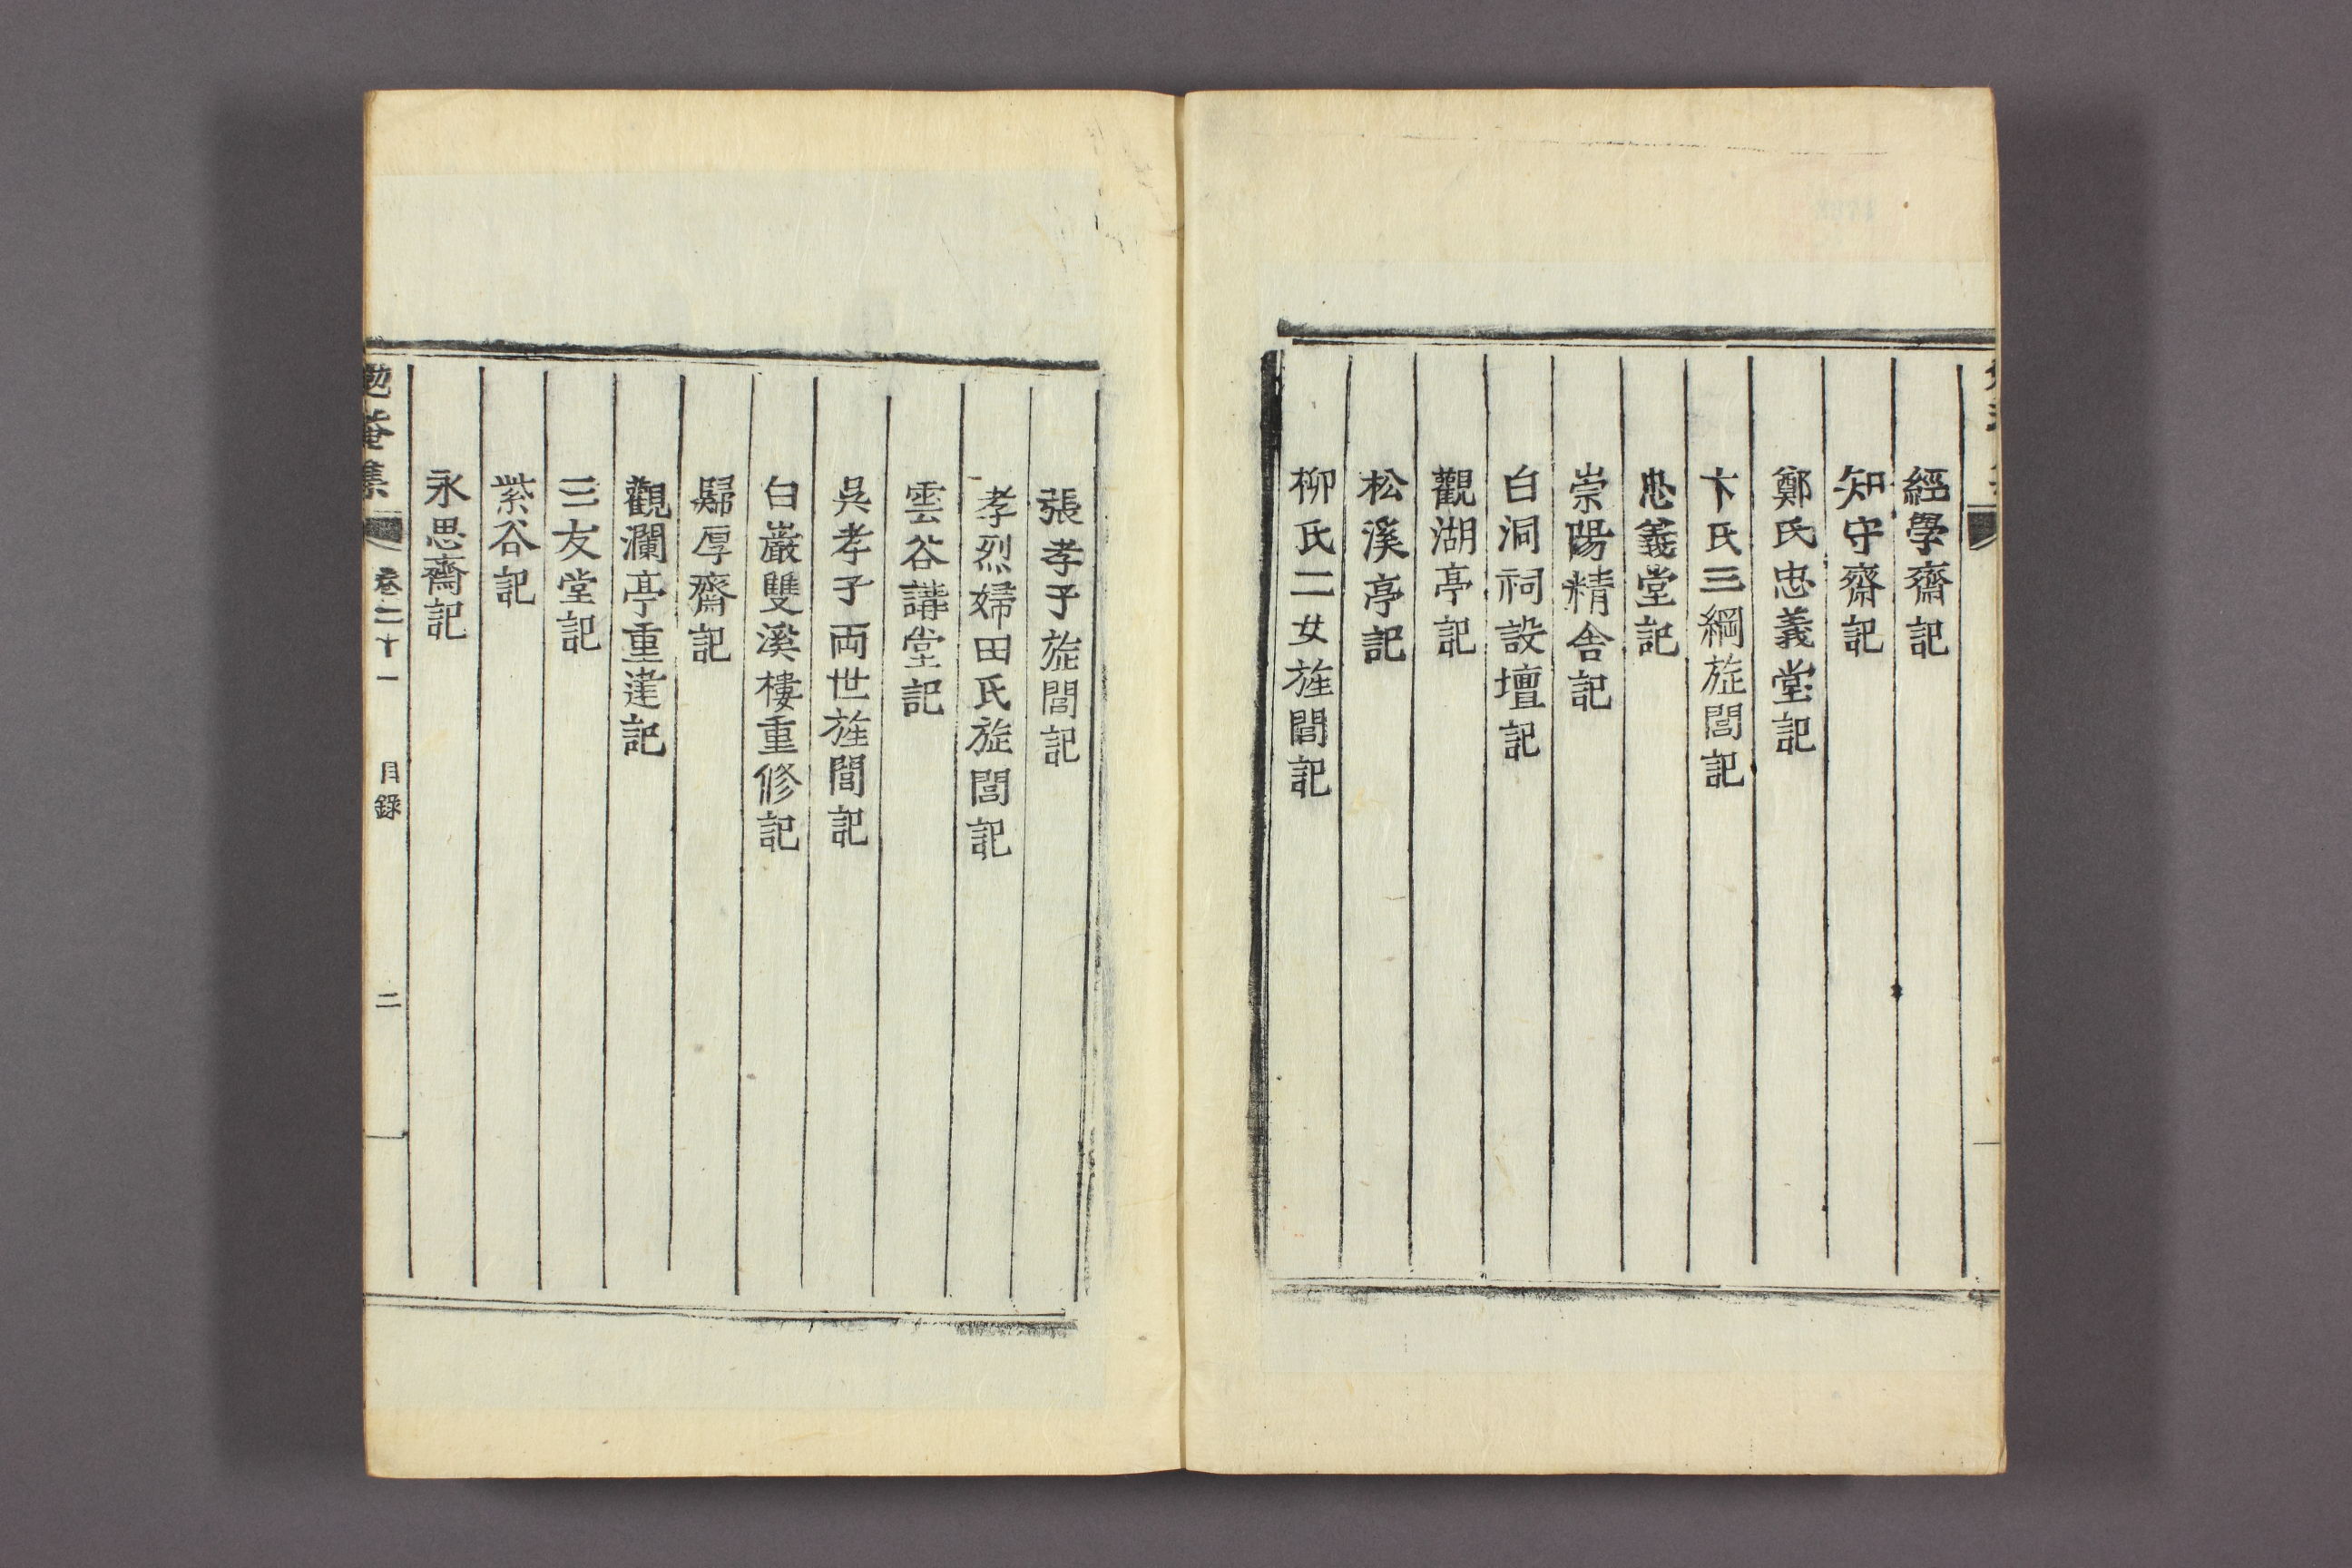 經學齋記
知守齋記
鄭氏忠義堂記
卞氏三綱旌閭記
忠義堂記
崇陽精舍記
白洞祠設壇記
觀湖亭記
松溪亭記
柳氏二女旌閭記
張孝子旌閭記
孝烈婦田氏旌閭記
雲谷講堂記
吳孝子両世旌閭記
白巖雙溪樓重修記
歸厚齋記
觀瀾亭重建記
三友堂記
紫谷記
永思齋記
勉菴集 卷二十一 目錄 二